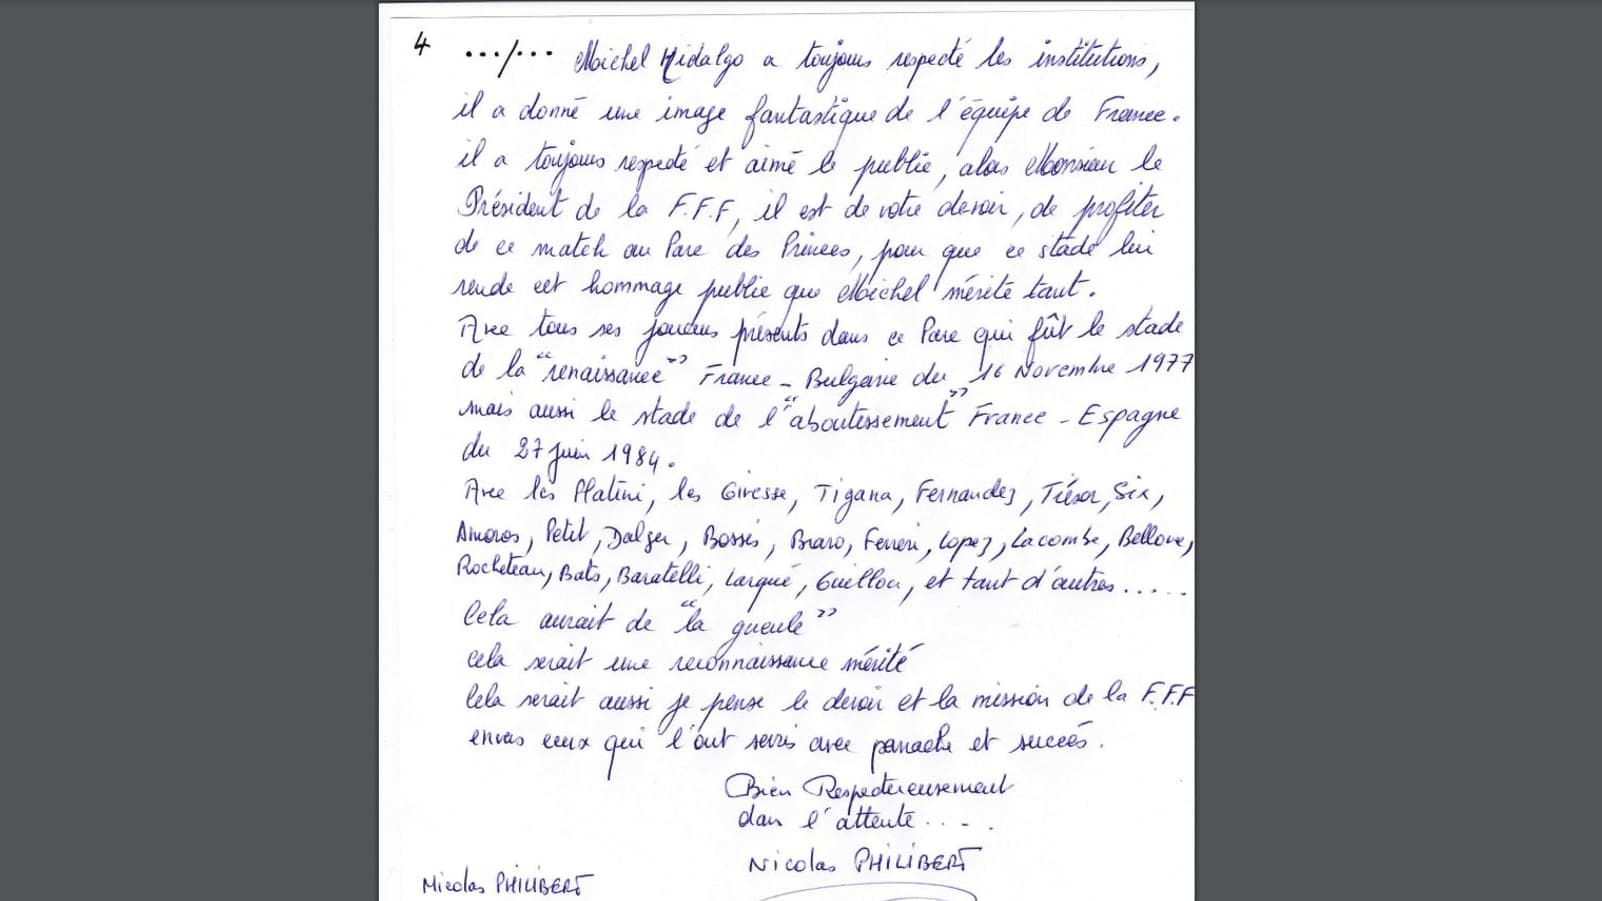 4 .../... Michel Hidalgo a toujours respecté les institutions,
il a donné une image fantastique de l'équipe de France.
il a toujours respecté et aimé le public, alors Monsieur le
Président de la F.F.F, il est de votre devoir, de profiter
de ce match au Parc des Princes, pour que ce stade lui
rende cet hommage public que Michel mérite tant.
Avec tous ses joueurs présents dans ce Parc qui fût le stade
de la "renaissance" France - Bulgarie du 16 Novembre 1977
mais aussi le stade de l'"aboutissement" France - Espagne
du 27 juin 1984.
Avec les Platini, les Giresse, Tigana, Fernandez, Trésor, Six,
Amoros, Petit, Dalger, Bossis, Bravo, Ferreri, Lopez, Lacombe, Bellone,
Rocheteau, Bats, Baratelli, Larqué, Guillou, et tant d'autres.....
Cela aurait de "la gueule"
cela serait une reconnaissance mérité
Cela serait aussi je pense le devoir et la mission de la F.F.F
envers ceux qui l'ont servis avec panache et succès.
Bien Respectueusement
dans l'attente....
Nicolas PHILIBERT
Nicolas PHILIBERT